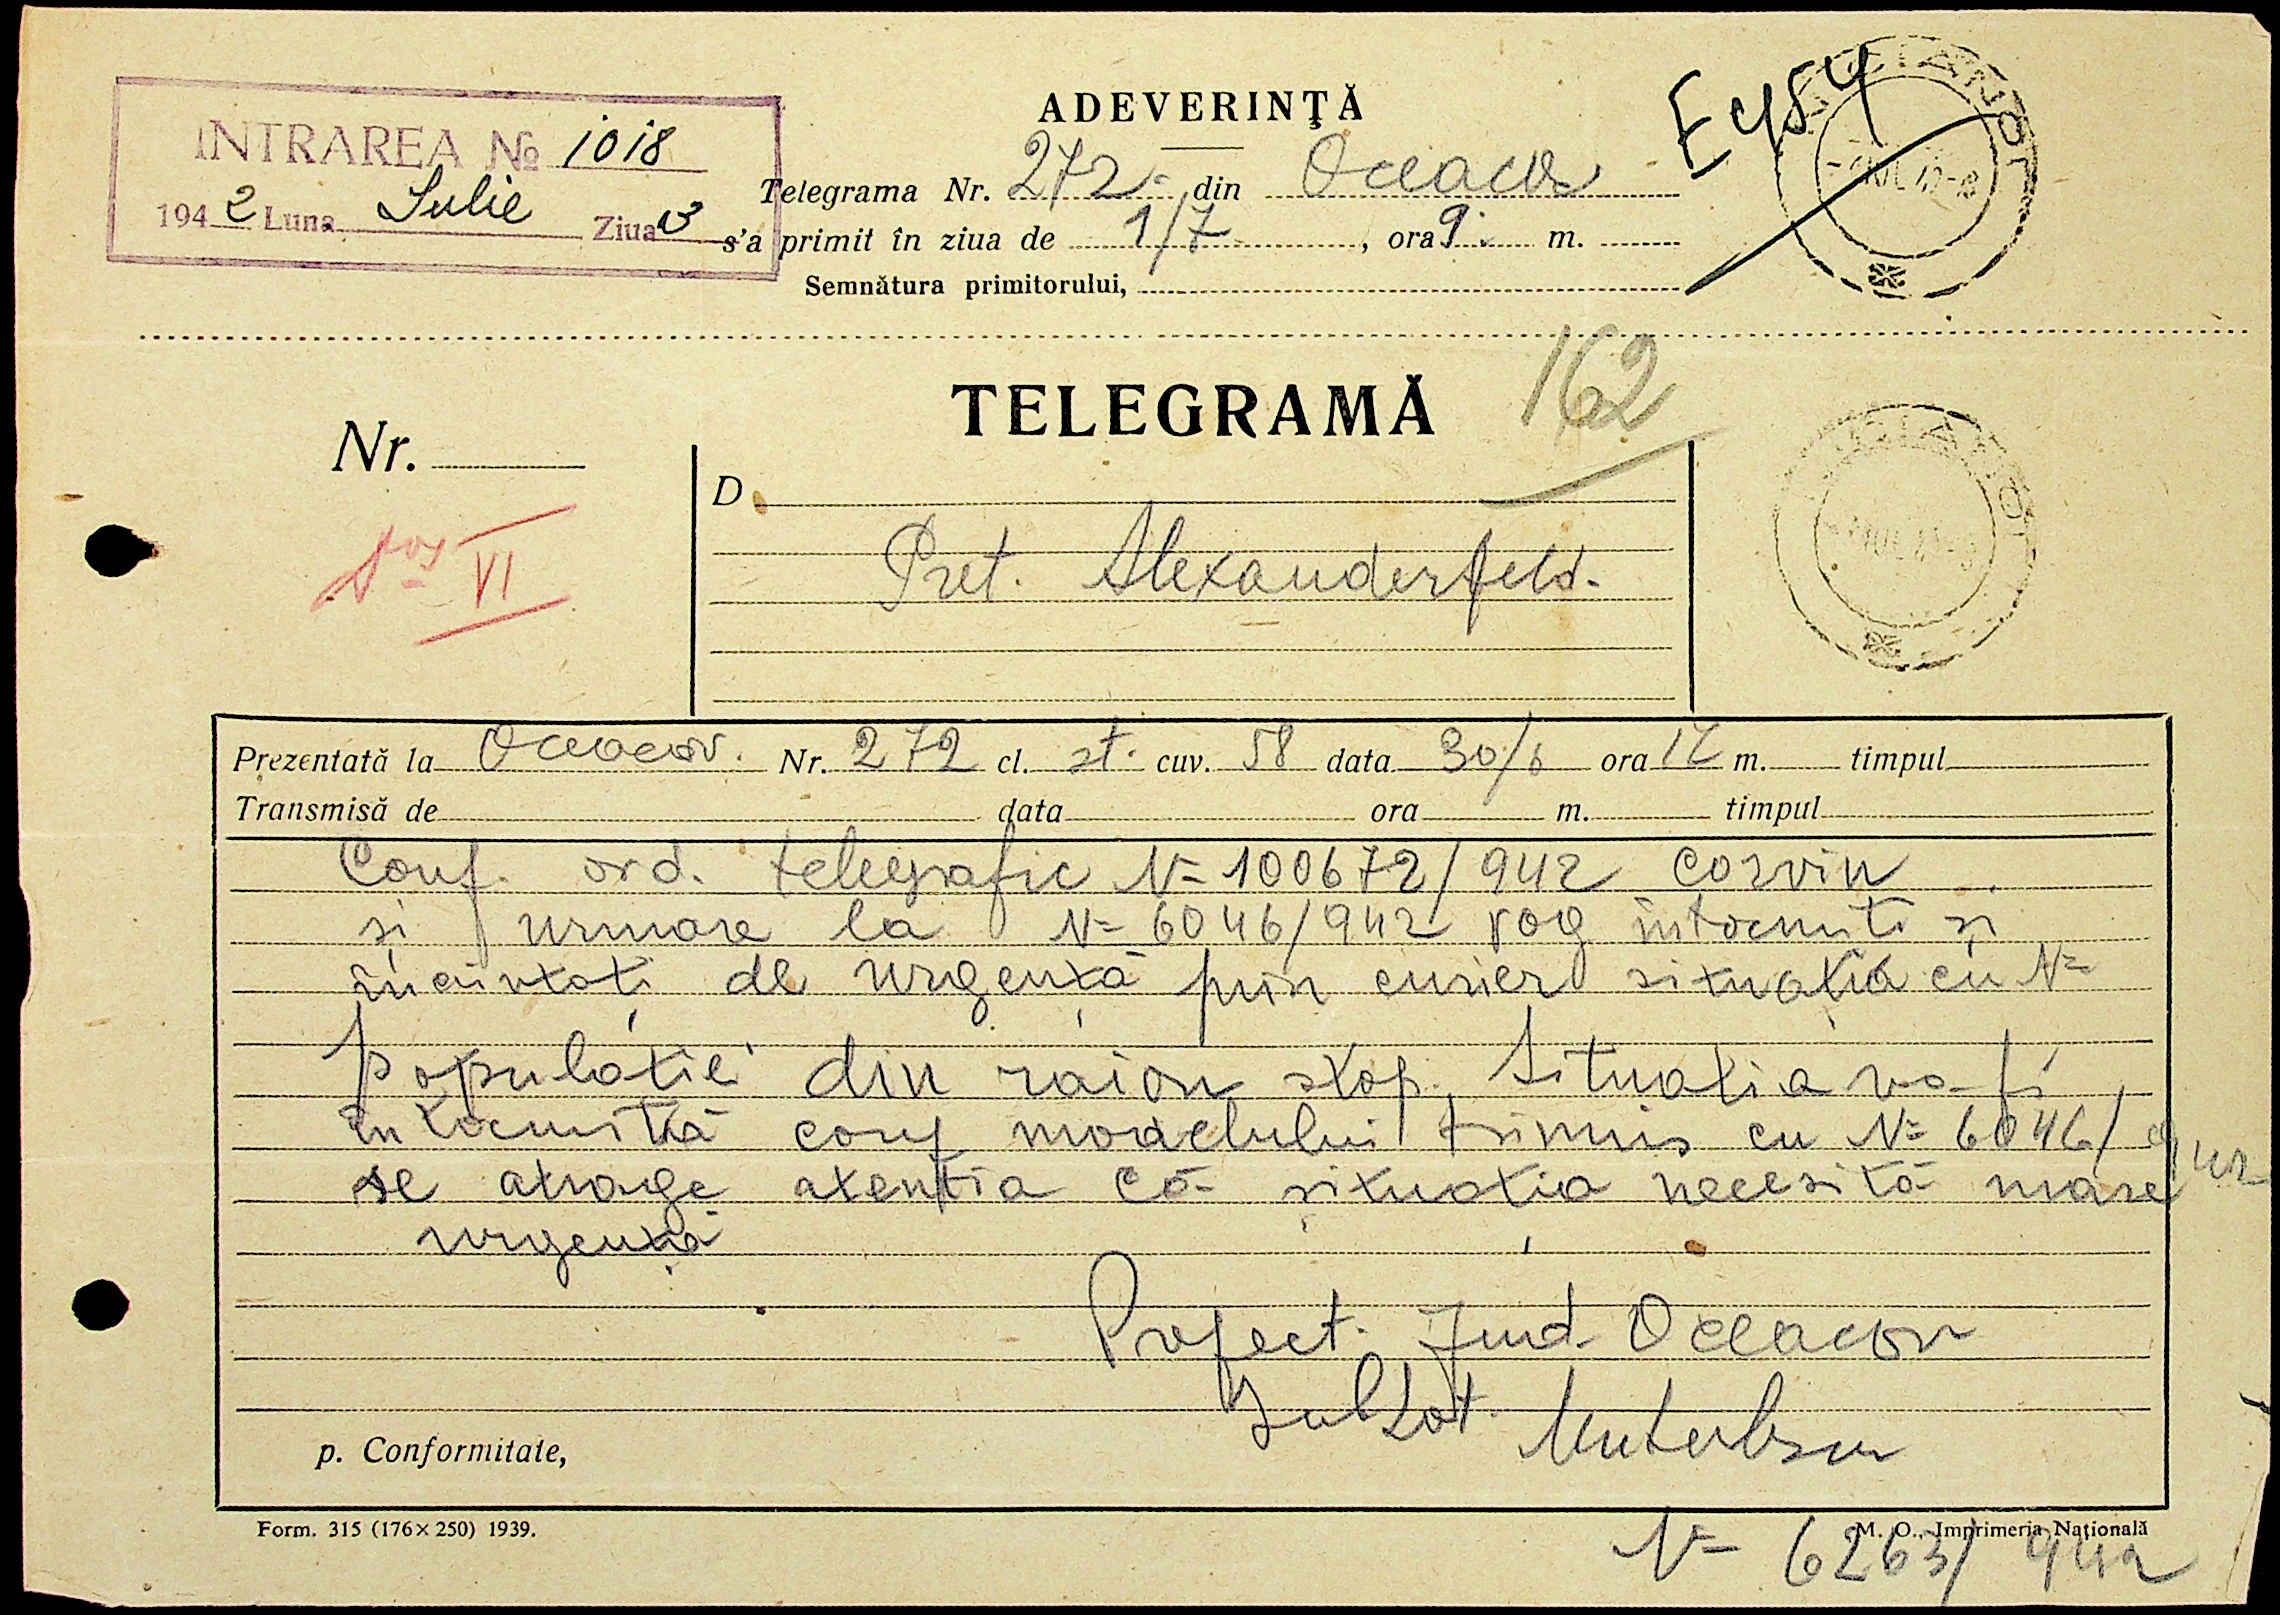 INTRAREA № 1018
1942 Luna Iulie Ziua 3
ADEVERINŢĂ
Telegrama Nr. 272 din Oceacov
s'a primit în ziua de 1/7, ora 9. m.
Semnătura primitorului,
162
TELEGRAMĂ
Nr.
Dos VI
D
Pret. Alexanderfeld.
Prezentată la Oceacov. Nr. 272 cl. st. cuv. 58 data 30/6 ora 17 m. timpul
Transmisă de data ora m. timpul
Conf. ord. telegrafic N= 100672/942 Corvin
și urmare la N= 6046/942 rog intocmiti și
inaintați de urgență prin curier situația cu N=
populatiei din raion stop. Situatia va fi
intocmită conf modelului trimis cu N= 6046/942
se atrage atenția că situația necesită mare
urgență
Prefect. Jud. Oceacov
N= 6263/942
p. Conformitate,
Form. 315 (176×250) 1939.
M. O., Imprimeria Naţională